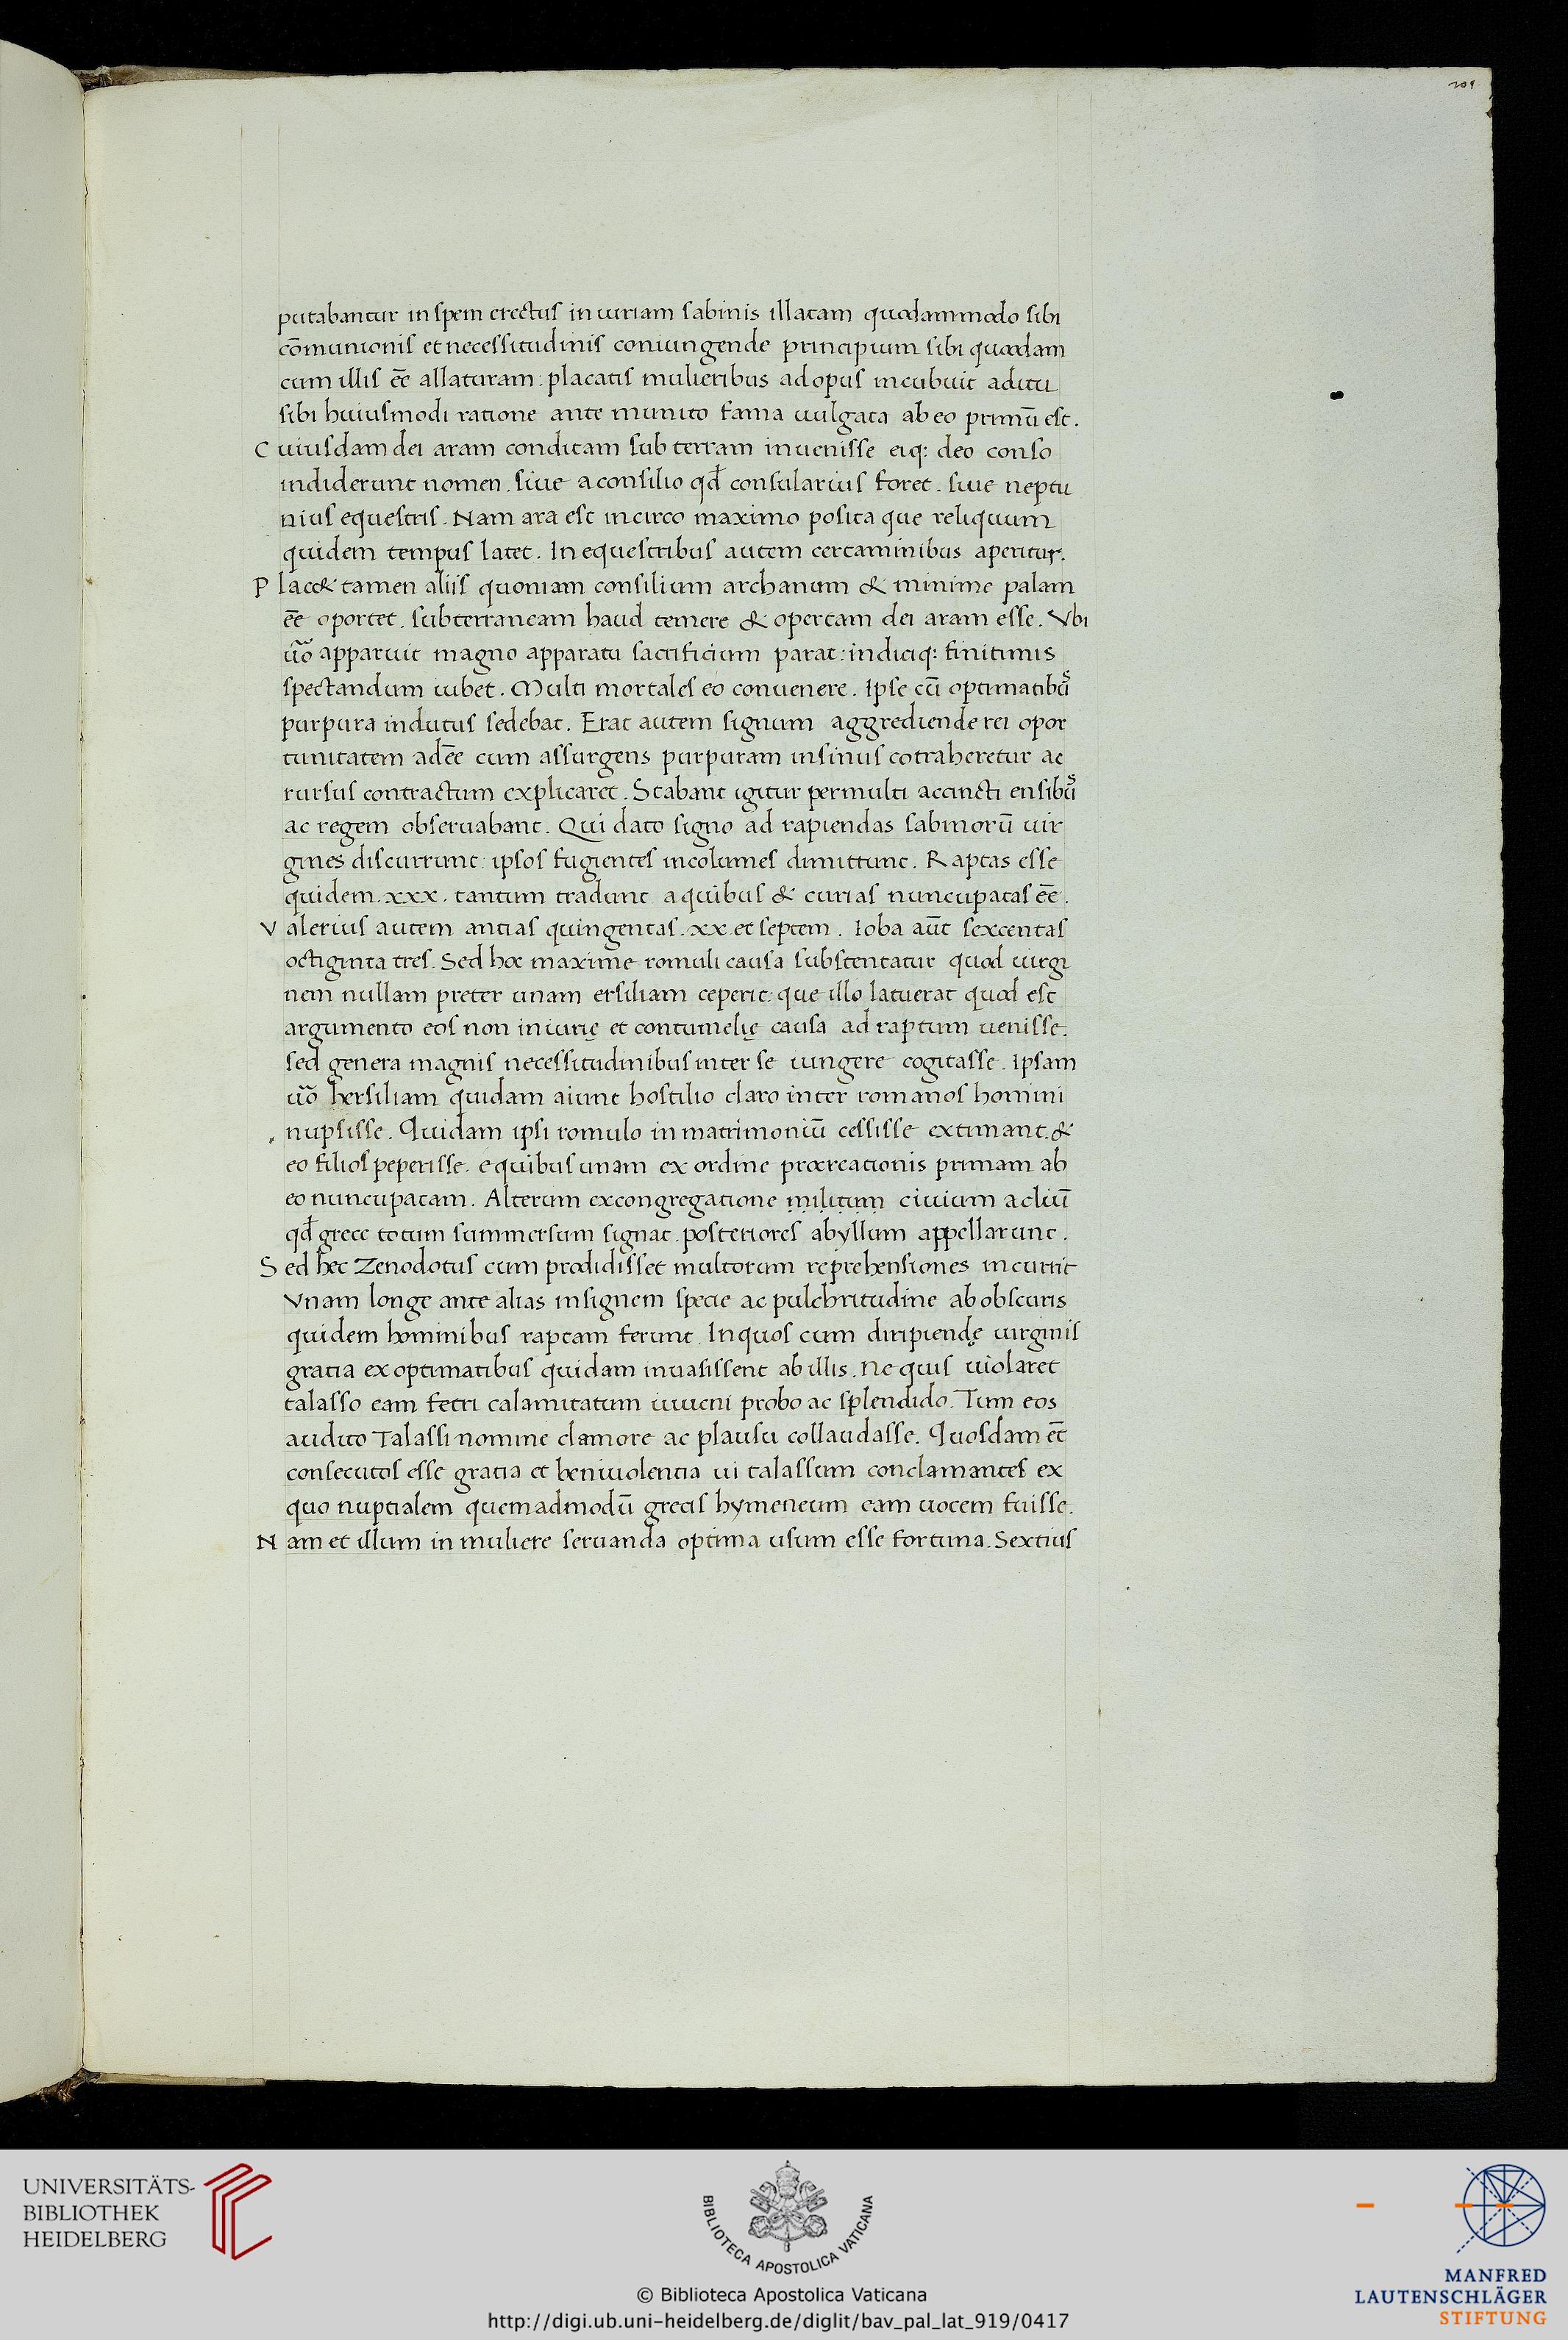 201
putabantur in spem erectus iniuriam sabinis illatam quodammodo sibi
cōmunionis et necessitudinis coniungende principium sibi quoddam
cum illis eē allaturam: placatis mulieribus ad opus incubuit aditu
sibi huiusmodi ratione ante munito fama vulgata ab eo primū est.
Cuiusdam dei aram conditam sub terram invenisse eiq: deo conso
indiderunt nomen. sive a consilio qd̄ consularius foret. sive neptu
nius equestris. Nam ara est in circo maximo posita que reliquum
quidem tempus latet. In equestribus autem certaminibus aperitur.
Plac& tamen aliis quoniam consilium archanum & minime palam
eē oportet. subterraneam haud temere & opertam dei aram esse. Vbi
ūo apparuit magno apparatu sacrificium parat: indiciq: finitimis
spectandum iubet. Multi mortales eo convenere. Ipse cū optimatibus
purpura indutus sedebat. Erat autem signum aggrediende rei opor
tunitatem adeē cum assurgens purpuram in sinus cotraheretur ac
rursus contractum explicaret. Stabant igitur permulti accincti ensibus
ac regem observabant. Qui dato signo ad rapiendas sabinorū vir
gines discurrunt: ipsos fugientes incolumes dimittunt. Raptas esse
quidem. xxx. tantum tradunt a quibus & curias nuncupatas eē.
Valerius autem antias quingentas. xx. et septem. Ioba aūt sexcentas
octiginta tres. Sed hoc maxime romuli causa substentatur quod virgi
nem nullam preter unam ersiliam ceperit: que illo latuerat quod est
argumento eos non iniurię et contumelię causa ad raptum venisse.
sed genera magnis necessitudinibus inter se iungere cogitasse. Ipsam
ūo hersiliam quidam aiunt hostilio claro inter romanos homini
nupsisse. Quidam ipsi romulo in matrimoniū cessisse extimant. &
eo filios peperisse. e quibus unam ex ordine procreationis primam ab
eo nuncupatam. Alterum ex congregatione militum civium acliū
qd̄ grece totum summersum signat. posteriores abyllum appellarunt.
Sed hec Zenodotus cum prodidisset multorum reprehensiones incurrit
Vnam longe ante alias insignem specie ac pulchritudine ab obscuris
quidem hominibus raptam ferunt. In quos cum diripiendę virginis
gratia ex optimatibus quidam invasissent ab illis. Ne quis violaret
talasso eam ferri calamitatum iuveni probo ac splendido. Tum eos
audito Talassi nomine clamore ac plausu collaudasse. Quosdam et̄
consecutos esse gratia et benivolentia ui talassum conclamantes ex
quo nuptialem quemadmodū grecis hymeneum eam vocem fuisse.
Nam et illum in muliere servanda optima usum esse fortuna. Sextius
UNIVERSITÄTS-
BIBLIOTHEK
HEIDELBERG
BIBLIOTECA APOSTOLICA VATICANA
© Biblioteca Apostolica Vaticana
http://digi.ub.uni-heidelberg.de/diglit/bav_pal_lat_919/0417
MANFRED
LAUTENSCHLÄGER
STIFTUNG